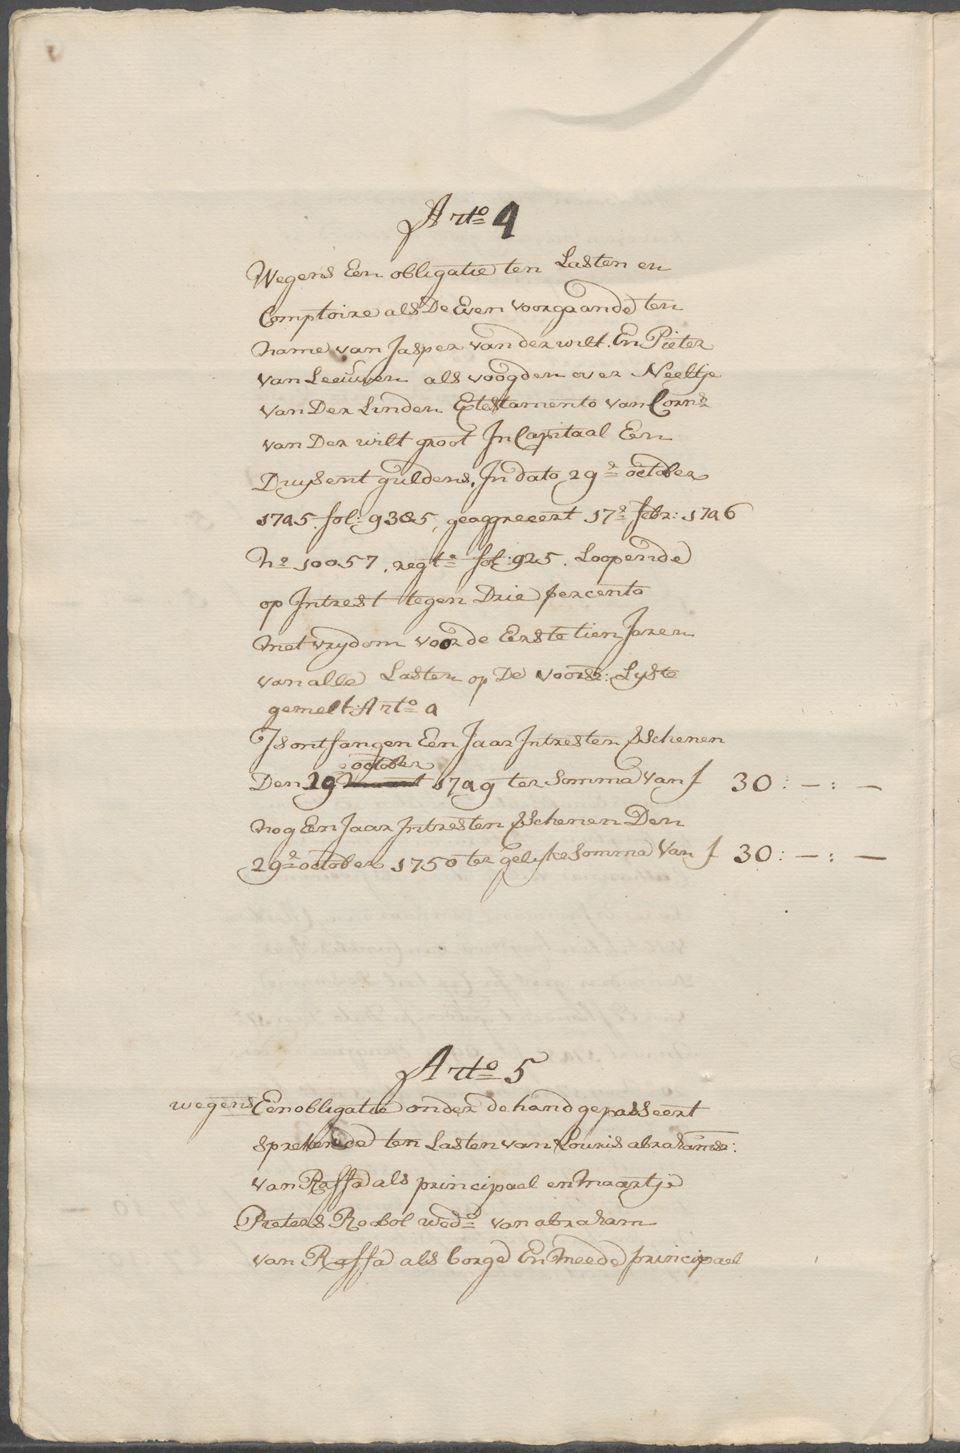 Arto 4
Wegens Een obligatie ten Lasten en
Comptoire als De Even voorgaande ten
name van Jasper van der wilt. En Pieter
van Leeuwen als voogden over Neeltje
van Der Linden Extestamento van Corns
van Der wilt groot In Capitaal Een
Duysent guldens, In dato 29e october
1745. fol: 9385, geaggreert 17e febr: 1746
No 10057, regt fol: 925. Loopende
op Intrest tegen Drie percento
met vrydom voor de Eerste tien Jaren
van alle Lasten op De voors: Lyste
gemelt Arto 4
Is ontfangen Een Jaar Intresten vScheenen
october
Den 29 1749 ter Somma van f 30:—:—
nog Een Jaar Intresten vScheenen Den
29e october 1750 ter gelyke Somma van f 30:—:—
Arto 5
wegens Een obligatie onder de hand gepasseert
sprekende ten Lasten van Louris abrahamse:
van Raffa als principael en Maartje
Pieters Robol wede van abraham
van Raffa als borge En meede principael